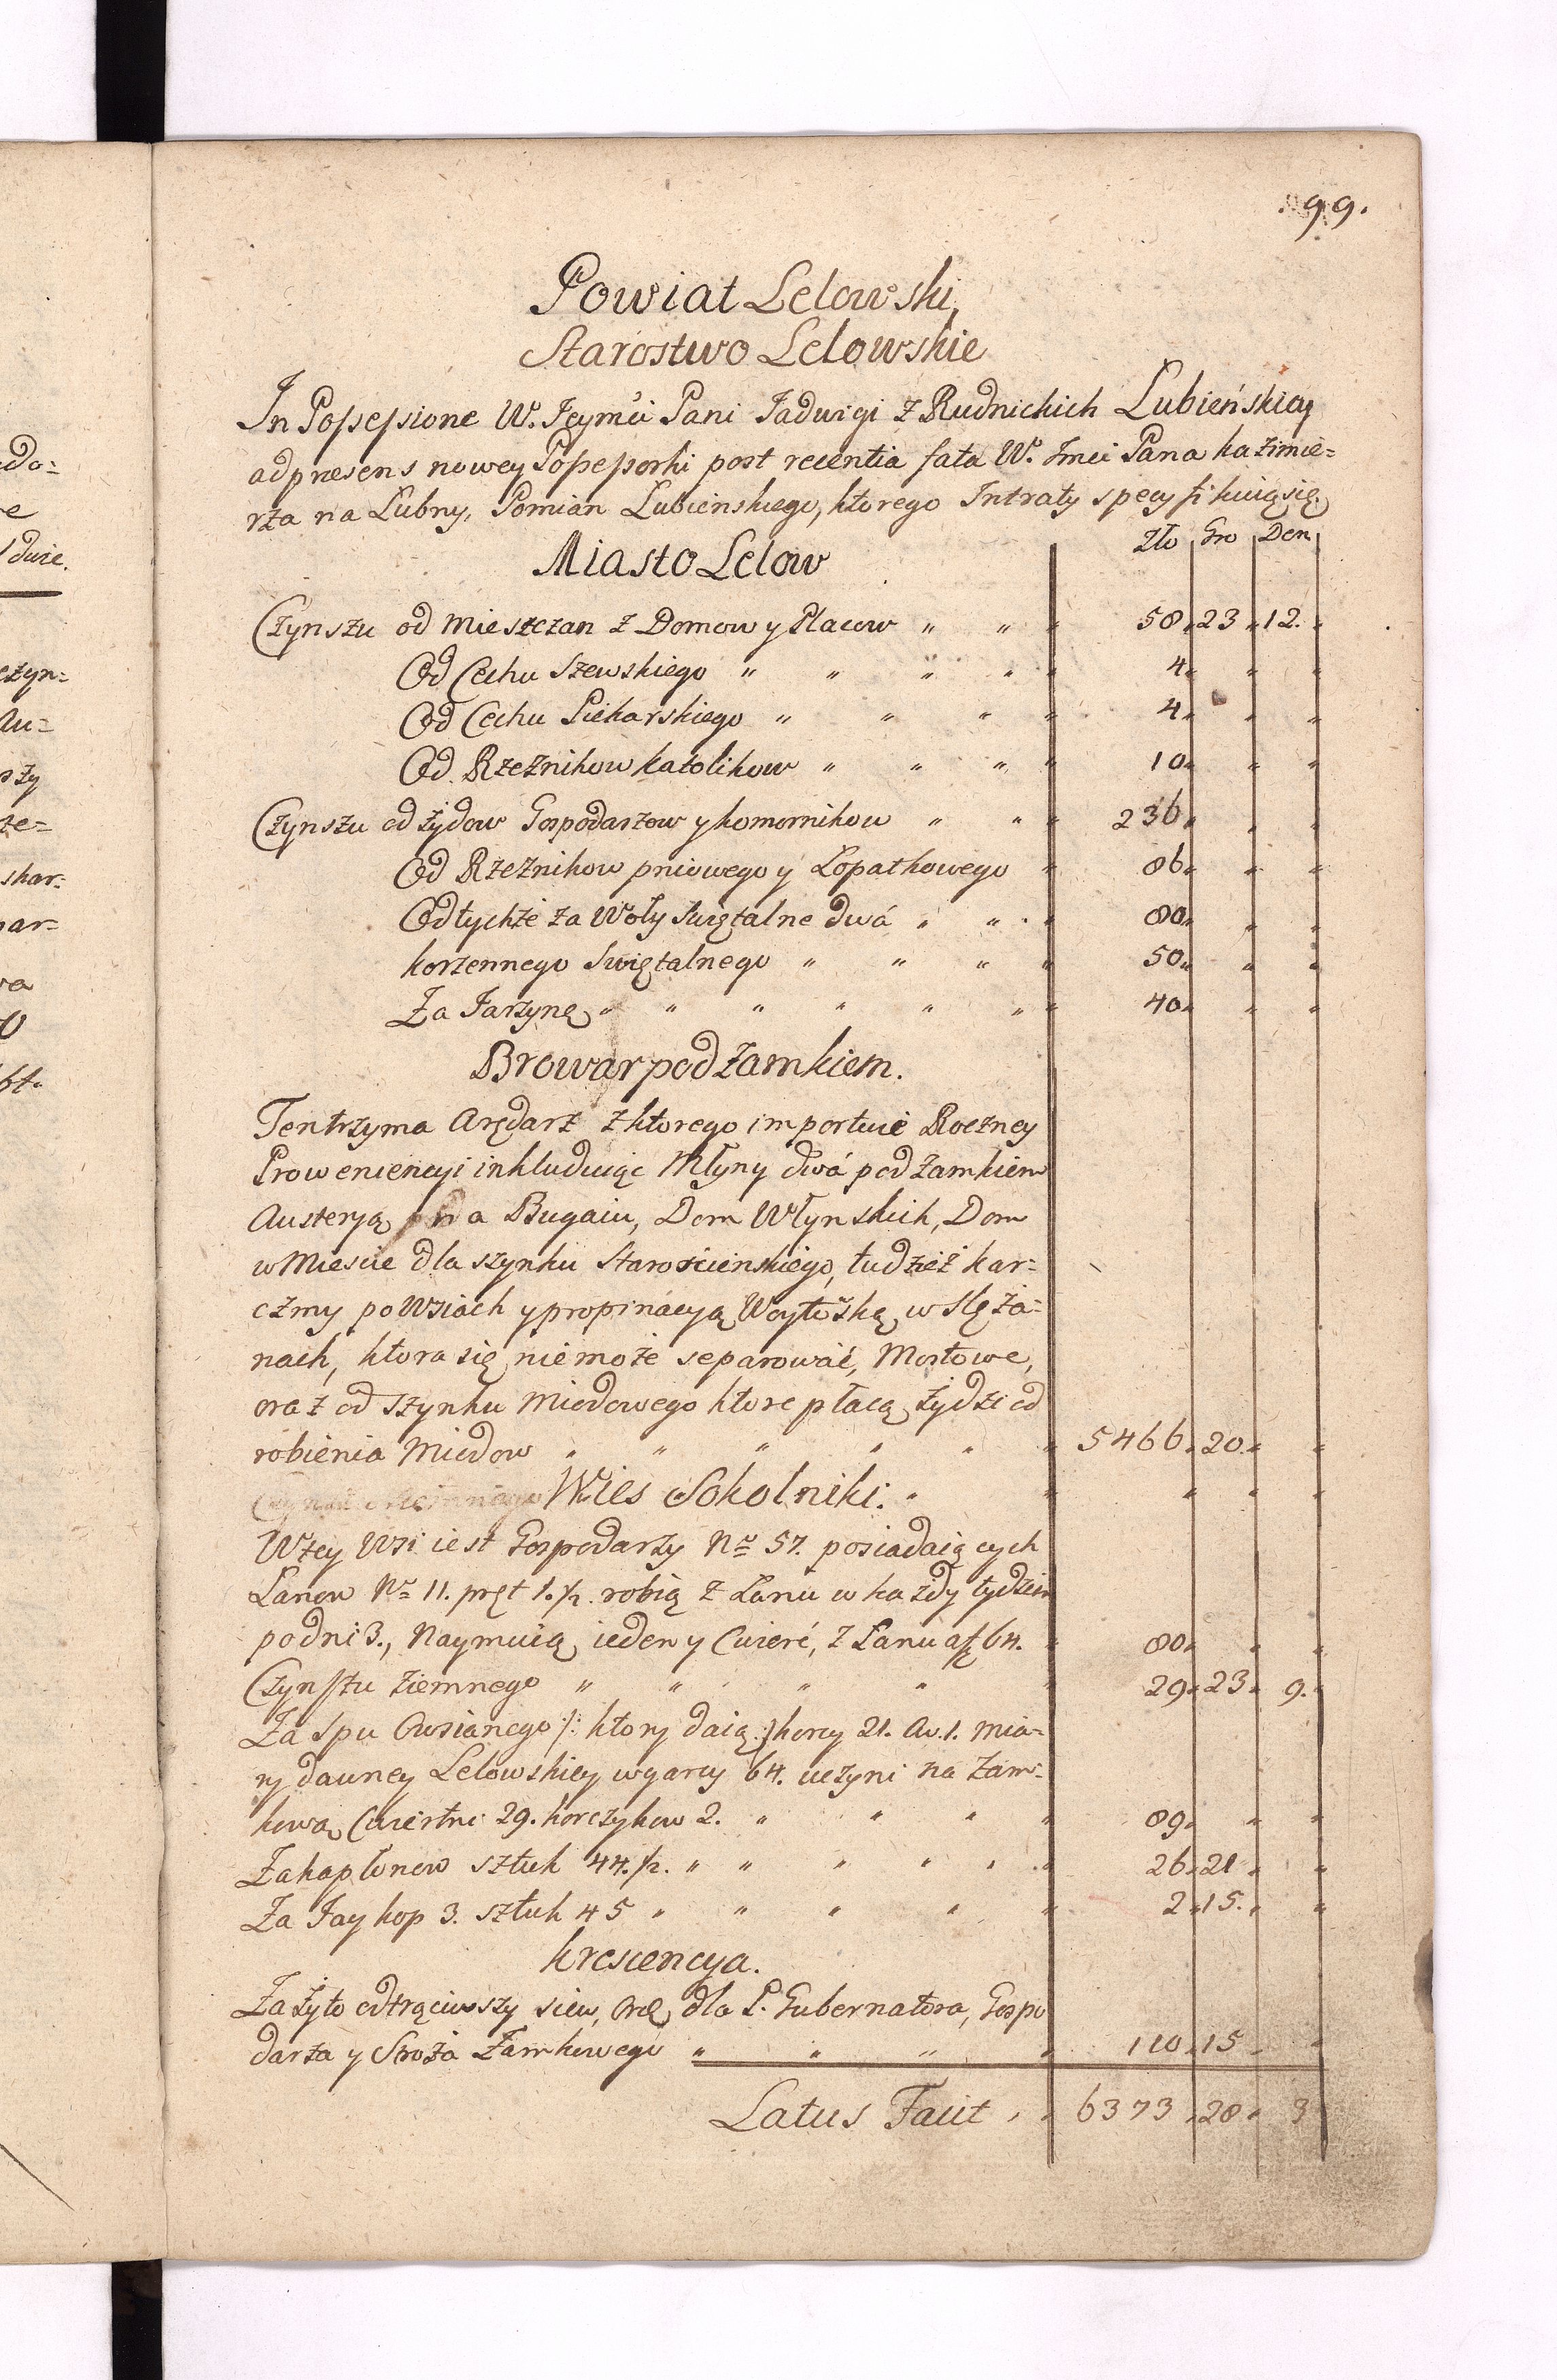 99.
Powiat Lelowski,
Starostwo Lelowskie
In Possessione W. Jeymći Pani Jadwigi z Rudnickich Lubieńskiey
ad presens nowey Possessorki post recentia fata W. Jmci Pana Kazimie=
rza na Lubny, Pomian Lubienskiego, ktorego Intraty specyfikuią się
Zło Gro Den
Miasto Lelow
Czynszu od Mieszczan z Domow y Placow " " " 58 " 23 " 12. "
Od Cechu Szewskiego " " " " " 4 " " "
Od Cechu Piekarskiego " " " " 4 " " "
Od Rzeznikow Katolikow " " " " 10 " " "
Czynszu od żydow Gospodarzow y komornikow " " " 236 " " "
Od Rzeznikow pniowego y Łopatkowego " 86 " " "
Od tychże za Woły Swiętalne dwá " " " 80 " " "
korzennego Swiętalnego " " " " 50 " " "
Za Jarzynę " " " " " " " 40 " " "
Browar pod Zamkiem.
Ten trzyma Arędarz z ktorego importuie Roczney
Proweniencyi inkluduiąc Młyny dwá pod Zamkiem
Austeryą na Bugaiu, Dom Włynskich, Dom
w Miescie dla szynku Starościenskiego, tudzież kar=
czmy po Wsiach y propinácyą Woytoską w Slęża=
nach, ktora się nie może separować, Mostowe,
oraz od szynku Miodowego ktore płacą żydzi od
robienia Miodow " " " " " " 5466 " 20 " "
Wies Sokolniki. " " " " "
W tey Wsi iest Gospodarzy Nro 57. posiadaiących
Łanow Nro 11. pręt 1.½. robią z Łanu w każdy tydzien
po dni 3., Naymuią ieden y Cwierć, z Łanu a f 64. " 80 " " "
Czynszu ziemnego " " " " " 29 " 23 " 9. "
Za Spu Owsianego /: ktory daią :/ korcy 21. Cw. 1. mia=
ry dawney Lelowskiey w garcy 64. uczyni na Zam=
kową Cwiertni 29. korczykow 2. " " " " 89 " " "
Za kapłonow sztuk 44.½. " " " " " " 26 " 21 " "
Za Jay kop 3. sztuk 45 " " " " " 2 " 15. " "
Krescencya.
Za żyto odtrąciwszy siew, Ord dla P. Gubernatora, Gospo
darza y Stroża Zamkowego " " " " 110 " 15 " "
Latus Facit " " 6373 " 28 " 3